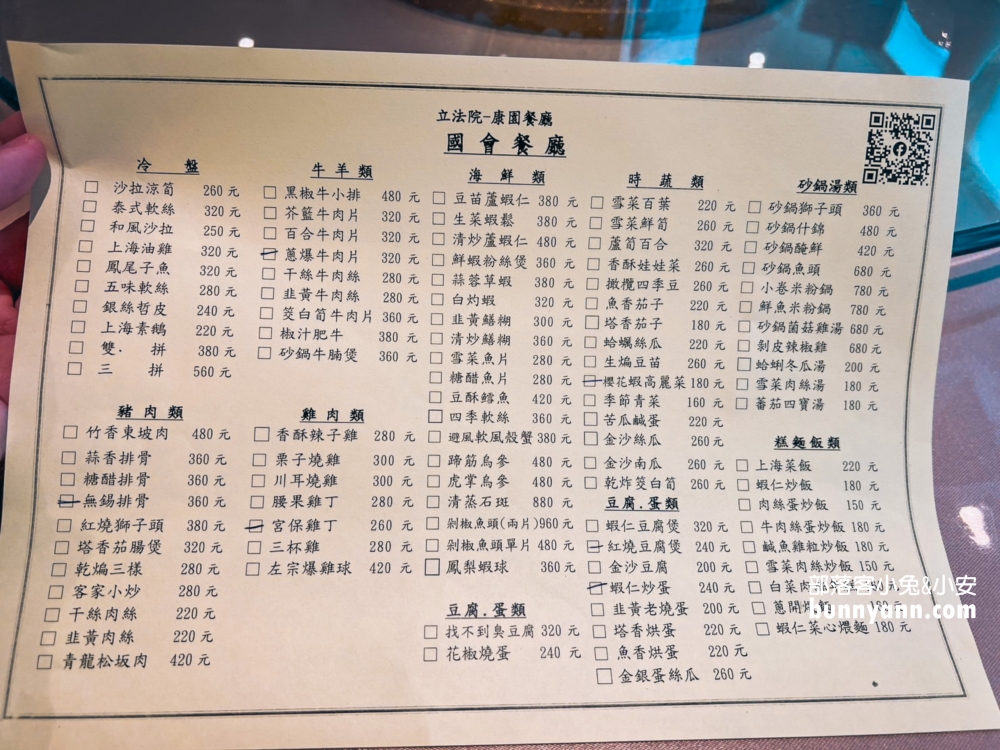 立法院-康園餐廳
國會餐廳
冷 盤
沙拉涼筍 260元
泰式軟絲 320元
和風沙拉 250元
上海油雞 320元
鳳尾子魚 320元
五味軟絲 280元
銀絲哲皮 240元
上海素鵝 220元
雙. 拼 380元
三 拼 560元
豬肉類
竹香東坡肉 480元
蒜香排骨 360元
糖醋排骨 360元
無錫排骨 360元
紅燒獅子頭 380元
塔香茄腸煲 320元
乾煸三樣 280元
客家小炒 280元
干絲肉絲 220元
韭黃肉絲 220元
青龍松坂肉 420元
牛羊類
黑椒牛小排 480元
芥籃牛肉片 320元
百合牛肉片 320元
蔥爆牛肉片 320元
干絲牛肉絲 280元
韭黃牛肉絲 280元
筊白筍牛肉片 360元
椒汁肥牛 380元
砂鍋牛腩煲 360元
雞肉類
香酥辣子雞 280元
栗子燒雞 300元
川耳燒雞 300元
腰果雞丁 280元
宮保雞丁 260元
三杯雞 280元
左宗爆雞球 420元
海鮮類
豆苗蘆蝦仁 380元
生菜蝦鬆 380元
清炒蘆蝦仁 480元
鮮蝦粉絲煲 360元
蒜蓉草蝦 380元
白灼蝦 320元
韭黃鱔糊 300元
清炒鱔糊 360元
雪菜魚片 280元
糖醋魚片 280元
豆酥鱈魚 420元
四季軟絲 360元
避風軟風殼蟹 380元
蹄筋烏參 480元
虎掌烏參 480元
清蒸石斑 880元
剁椒魚頭(兩片) 960元
剁椒魚頭單片 480元
鳳梨蝦球 360元
豆腐.蛋類
找不到臭豆腐 320元
花椒燒蛋 240元
時蔬類
雪菜百葉 220元
雪菜鮮筍 260元
蘆筍百合 320元
香酥娃娃菜 260元
橄欖四季豆 260元
魚香茄子 220元
塔香茄子 180元
蛤蠣絲瓜 220元
生煸豆苗 260元
櫻花蝦高麗菜 180元
季節青菜 160元
苦瓜鹹蛋 220元
金沙絲瓜 260元
金沙南瓜 260元
乾炸筊白筍 260元
豆腐.蛋類
蝦仁豆腐煲 320元
紅燒豆腐煲 240元
金沙豆腐 200元
蝦仁炒蛋 240元
韭黃老燒蛋 200元
塔香烘蛋 220元
魚香烘蛋 220元
金銀蛋絲瓜 260元
砂鍋湯類
砂鍋獅子頭 360元
砂鍋什錦 480元
砂鍋醃鮮 420元
砂鍋魚頭 680元
小卷米粉鍋 780元
鮮魚米粉鍋 780元
砂鍋菌菇雞湯 680元
剝皮辣椒雞 680元
蛤蜊冬瓜湯 200元
雪菜肉絲湯 180元
蕃茄四寶湯 180元
糕麵飯類
上海菜飯 220元
蝦仁炒飯 180元
肉絲蛋炒飯 150元
牛肉絲蛋炒飯 180元
鹹魚雞粒炒飯 180元
雪菜肉絲炒飯 150元
白菜肉
蔥開
蝦仁菜心煨麵 180元
部落客小兔&小安
bunnyann.com